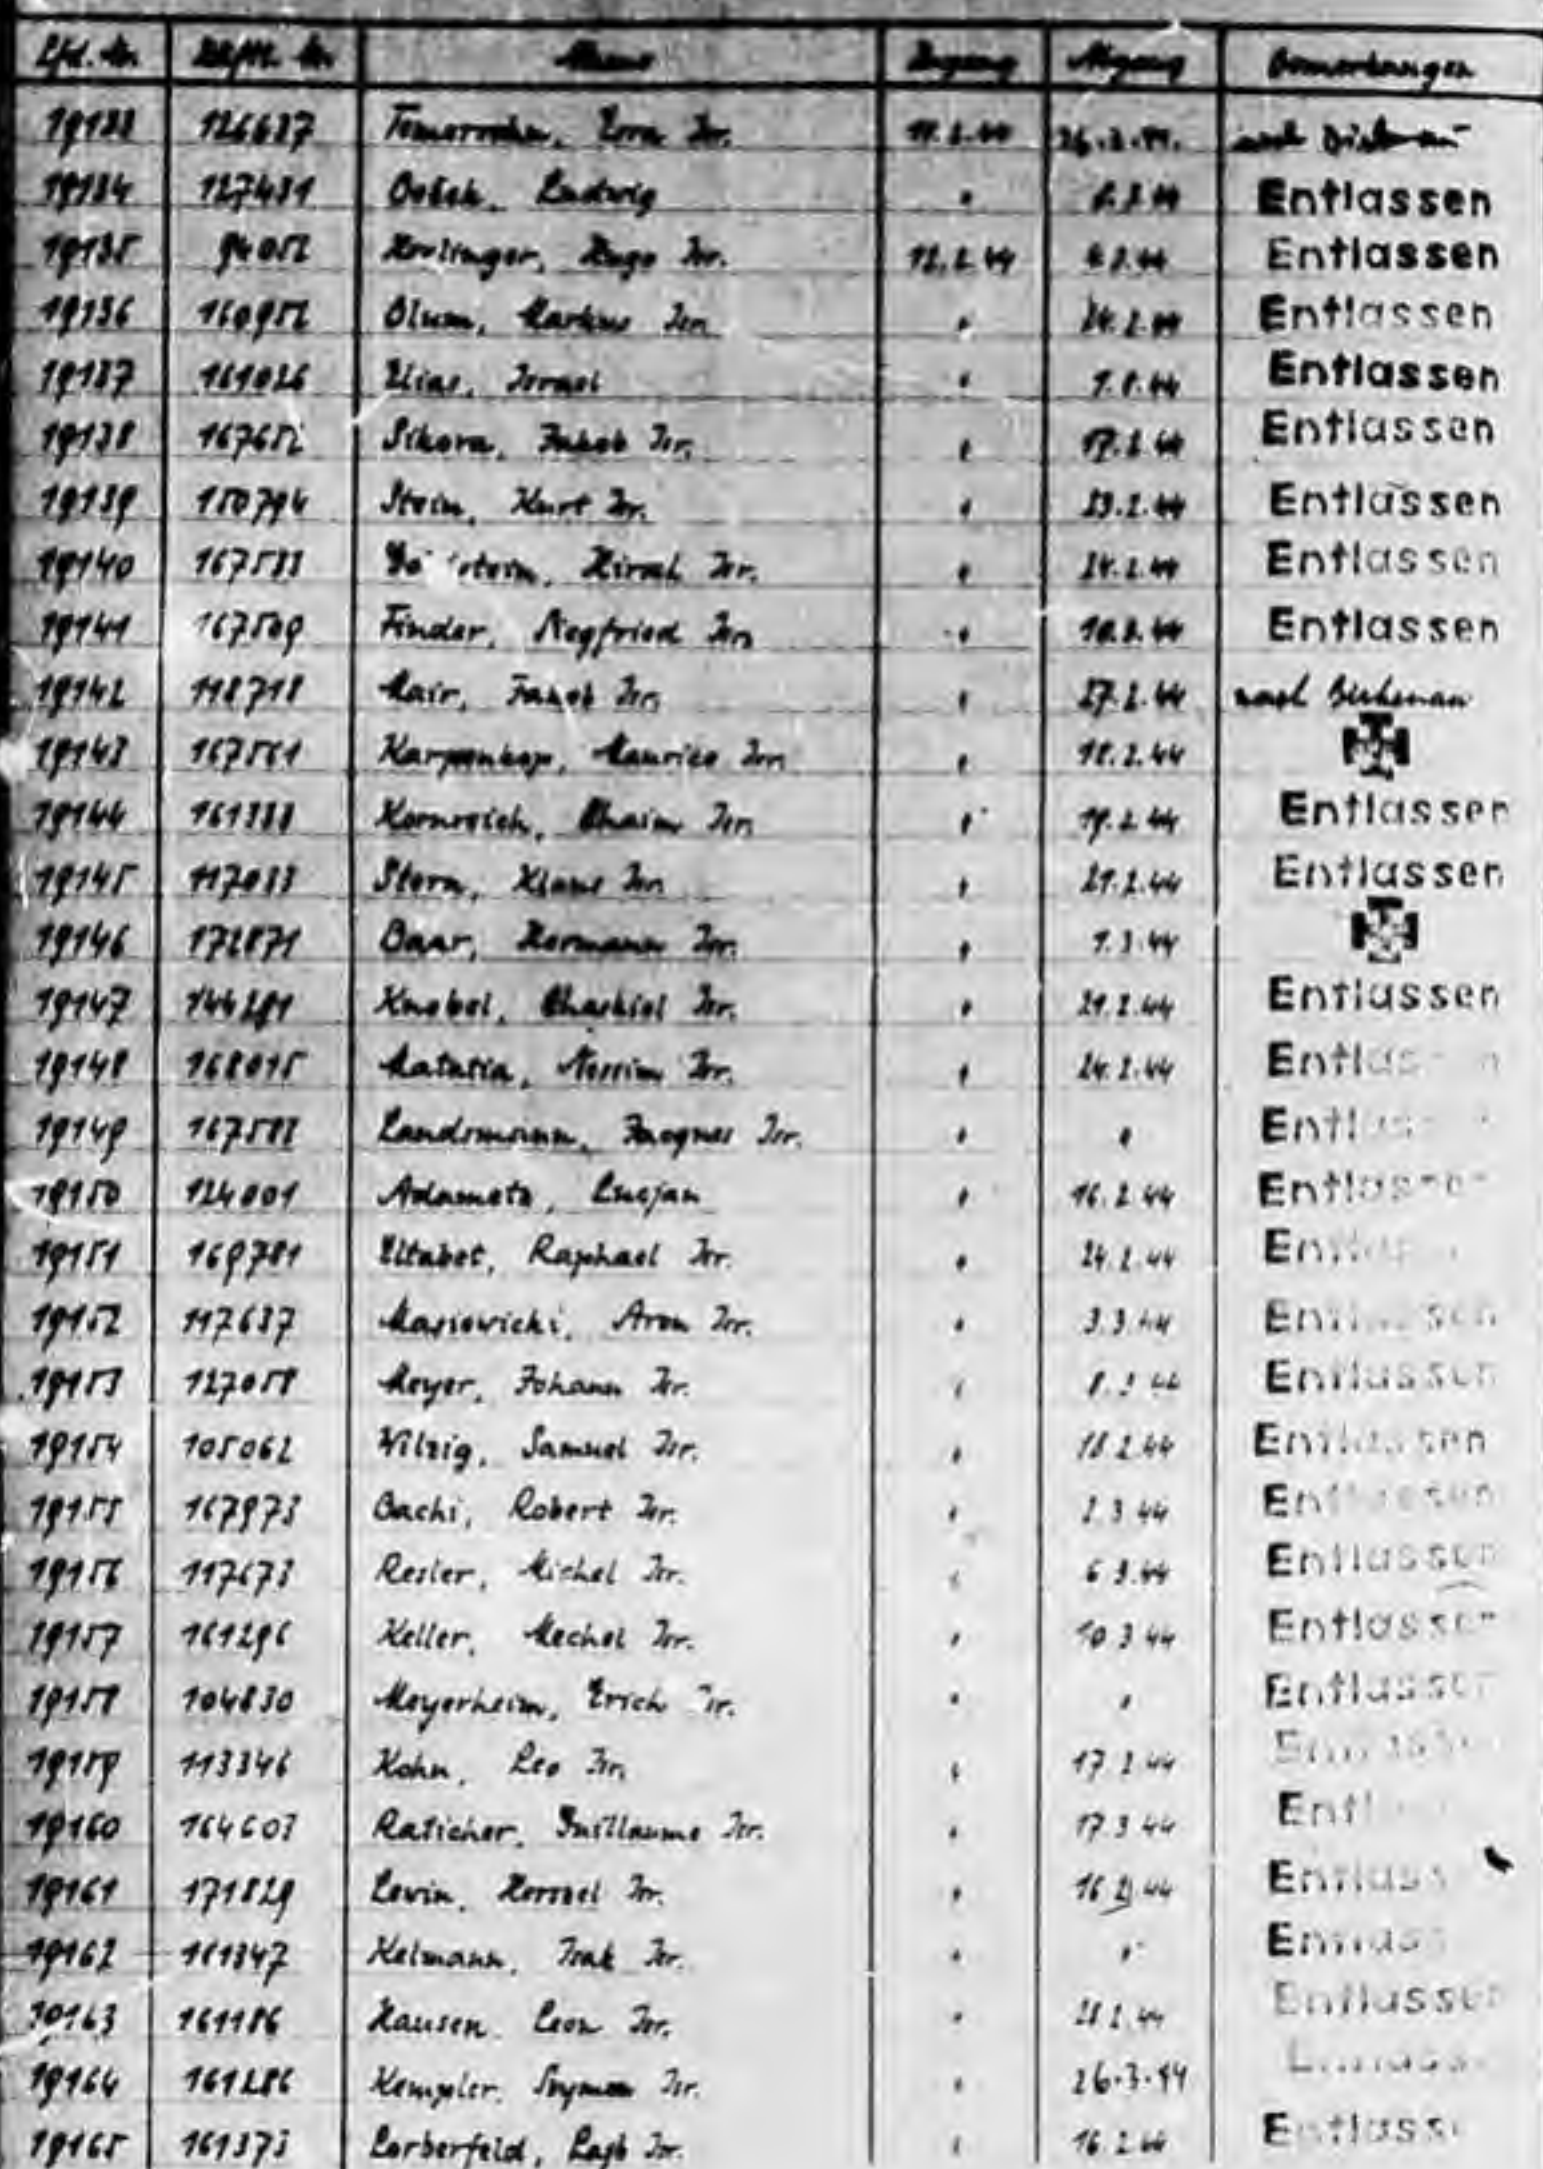 Lfd. Nr. Häftl. Nr. Name Zugang Abgang Bemerkungen
19133 126637 Isr. 11.2.44 26.2.44. nach Birkenau
19134 127431 Ludwig " Entlassen
19135 94052 Hugo Isr. 12.2.44 Entlassen
19136 160952 Blum, Markus Isr. " 24.2.44 Entlassen
19137 161026 Elias, Israel " Entlassen
19138 167652 Sikora, Jakob Isr. " 17.2.44 Entlassen
19139 150794 Stein, Kurt Isr. " 23.2.44 Entlassen
19140 167533 Hirsch Isr. " 24.2.44 Entlassen
19141 167509 Finder, Siegfried Isr. " Entlassen
19142 118718 Mair, Jakob Isr. " 27.2.44 nach Birkenau
19143 167561 Karpenkop, Maurice Isr. " 18.2.44
19144 161333 Kornreich, Chaim Isr. " 19.2.44 Entlassen
19145 117033 Stern, Klaus Isr. " 21.2.44 Entlassen
19146 172871 Baar, Hermann Isr. " 1.3.44
19147 144291 Knobel, Chaskiel Isr. " 21.2.44 Entlassen
19148 168015 Matatia, Nissim Isr. " 24.2.44 Entlassen
19149 167588 Landsmann, Jacques Isr. " " Entlassen
19150 124001 Adametz, Lucjan " 16.2.44 Entlassen
19151 169781 Eltabet, Raphael Isr. " 24.2.44 Entlassen
19152 117637 Aron Isr. " 3.3.44 Entlassen
19153 127058 Meyer, Johann Isr. " 8.3.44 Entlassen
19154 105062 Wilzig, Samuel Isr. " 18.2.44 Entlassen
19155 167973 Bachi, Robert Isr. " 2.3.44 Entlassen
19156 117673 Resler, Michel Isr. " 6.3.44 Entlassen
19157 161296 Keller, Mechel Isr. " 10.3.44 Entlassen
19158 104830 Meyerheim, Erich Isr. " " Entlassen
19159 113346 Kohn, Leo Isr. " 17.2.44 Entlassen
19160 164607 Raticher, Guillaume Isr. " 17.3.44 Entlassen
19161 171829 Lewin, Herszel Isr. " Entlassen
19162 161347 Kelmann, Isak Isr. " " Entlassen
19163 161186 Hausen, Leon Isr. " 28.2.44 Entlassen
19164 161286 Kempler, Szymon Isr. " 26.3.44 Entlassen
19165 161373 Larberfeld, Lajb Isr. " 16.2.44 Entlassen